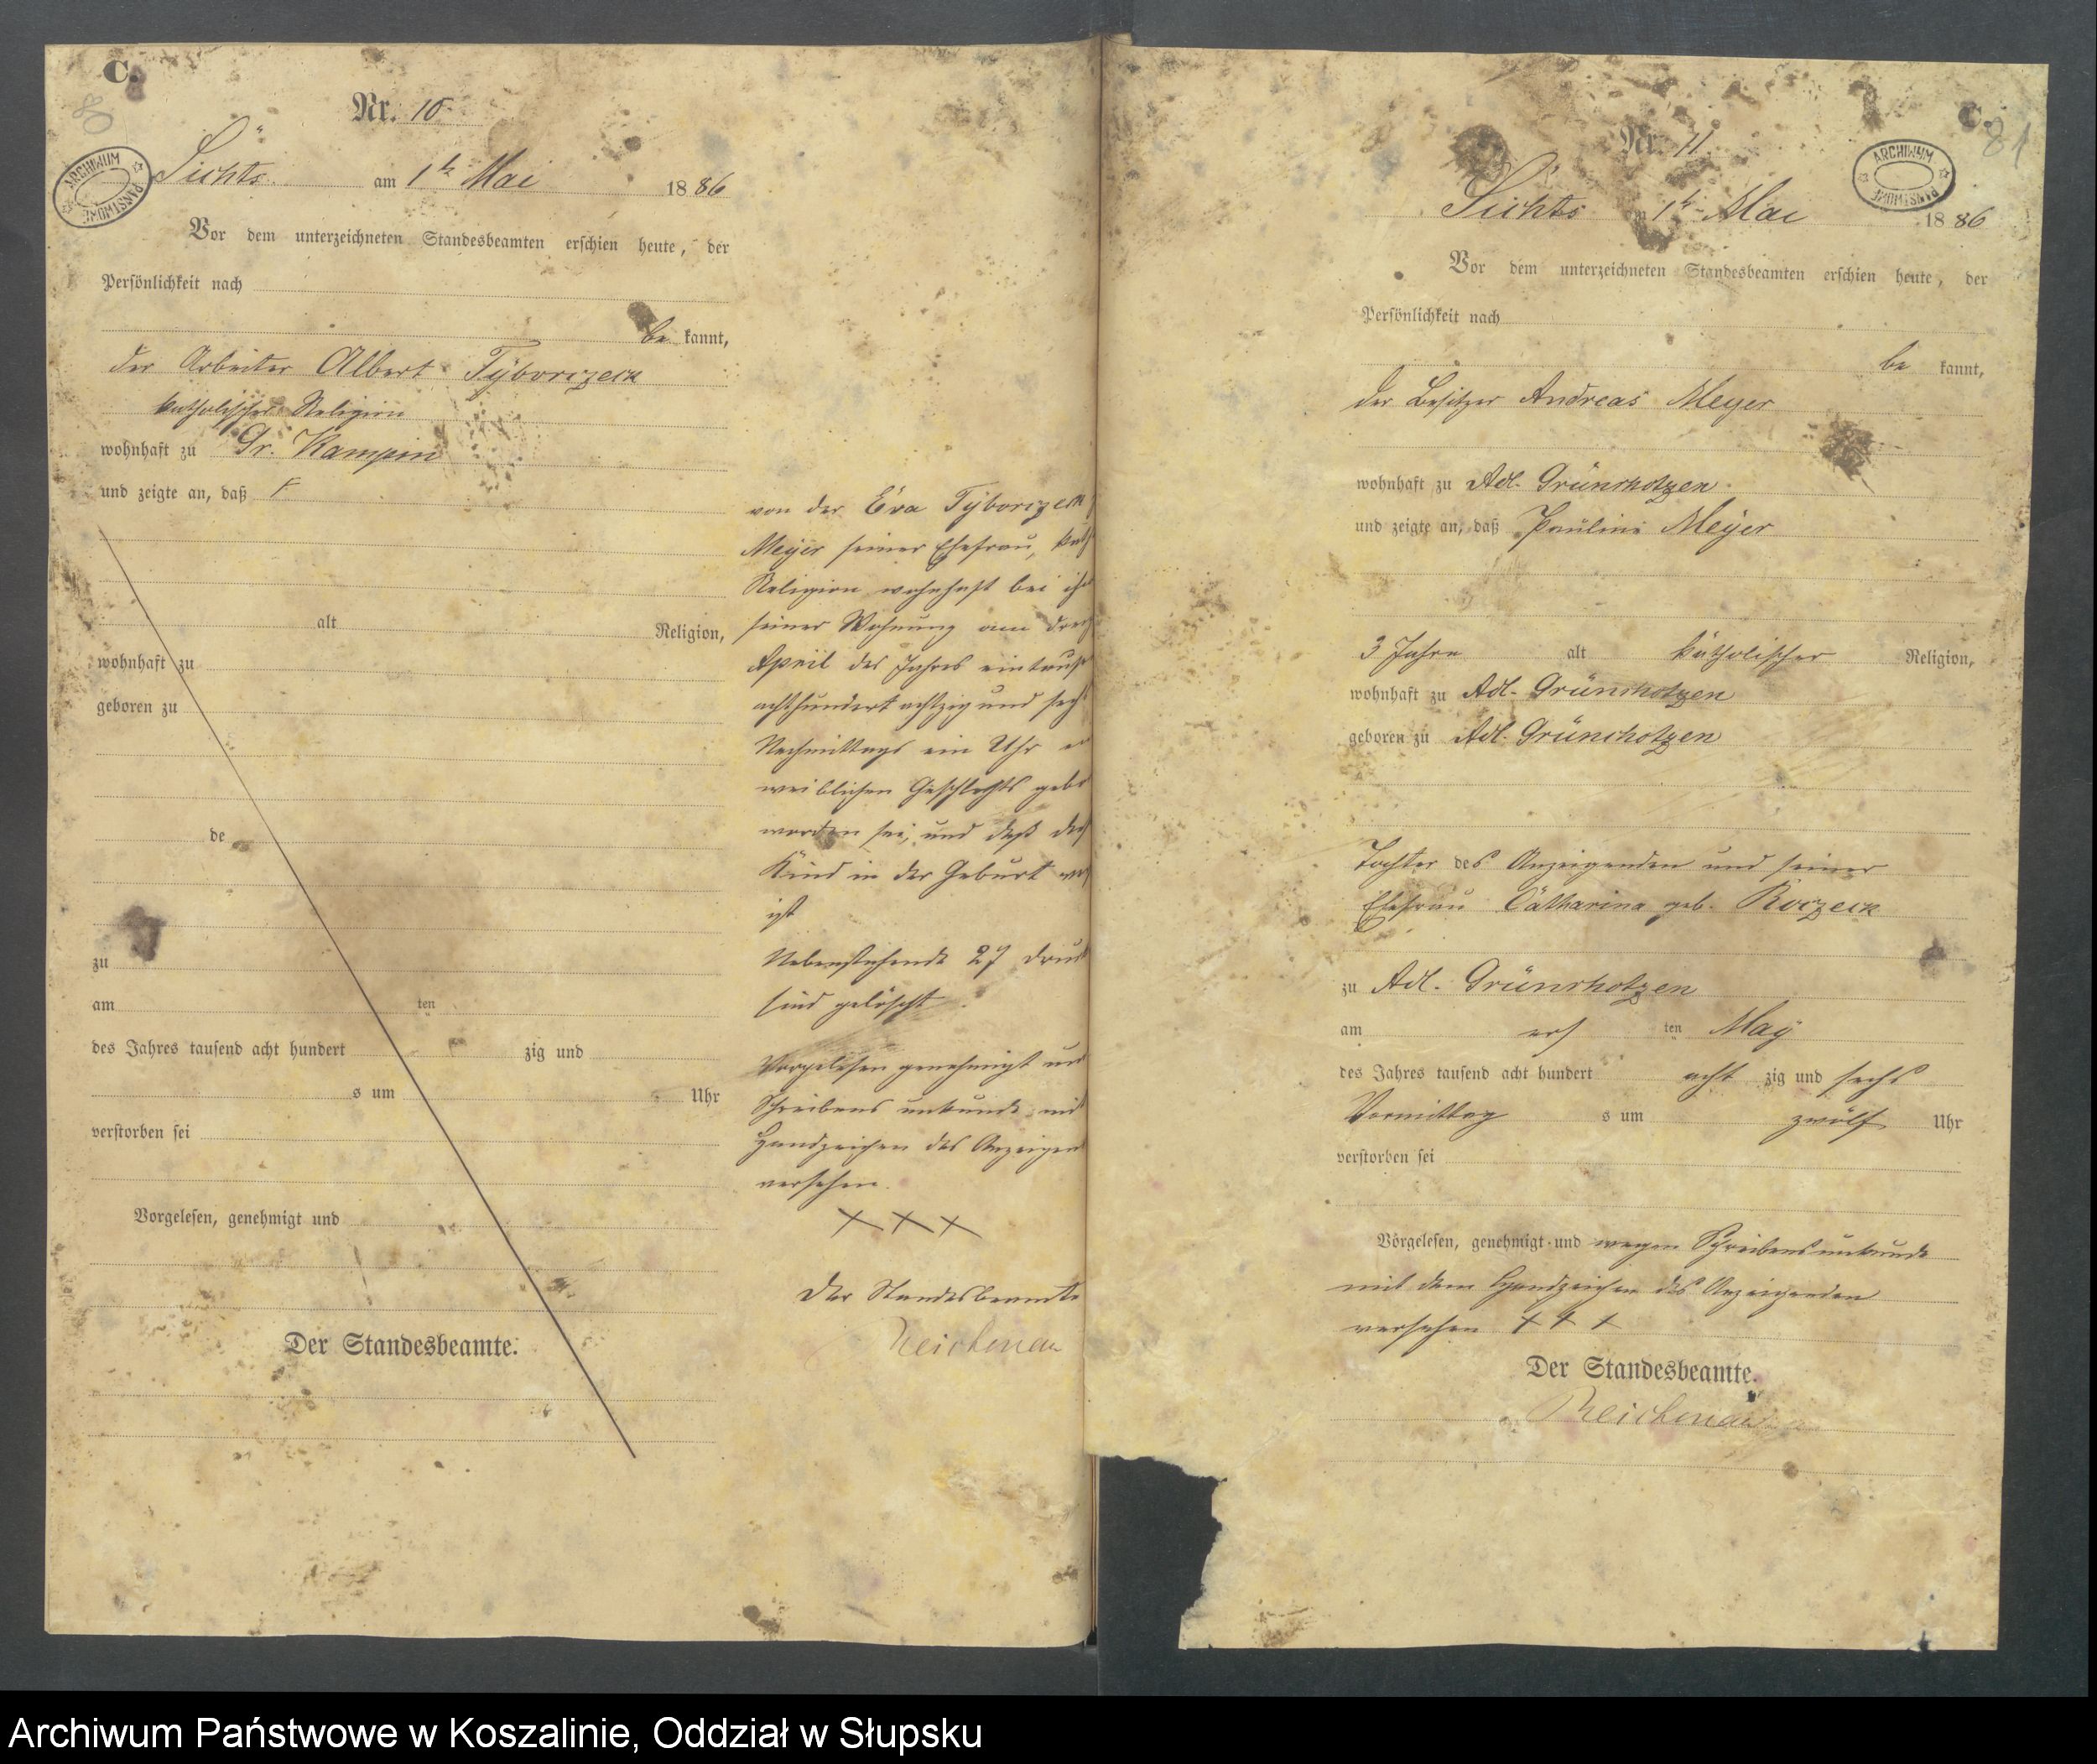 C.
80
Nr. 10
ARCHIWUM PAŃSTWOWE
Lichts am 1t Mai 1886
Vor dem unterzeichneten Standesbeamten erschien heute, der
Persönlichkeit nach
be kannt,
der Arbeiter Albert Tyborczeck
katholischer Religion
wohnhaft zu Gr. Kampin
und zeigte an, daß
alt Religion,
wohnhaft zu
geboren zu
de
zu
am ten
des Jahres tausend acht hundert zig und
s um Uhr
verstorben sei
Vorgelesen, genehmigt und
Der Standesbeamte.
von der Eva Tyborczeck
Meyer seiner Ehefrau, kath
Religion wohnhaft bei ihm
seiner Wohnung am
April des Jahres eintaus
achthundert achtzig und sech
Nachmittags ein Uhr
weiblichen Geschlechts gebo
worden sei, und daß das
Kind in der Geburt
ist
Nebenstehende 27 Druck
sind gelöscht.
Vorgelesen genehmigt und
Schreibens unkunde mit
Handzeichen des Anzeigend
versehen.
+++
Der Standesbeamte
Reichenau
C.
81
Nr. 11.
ARCHIWUM PAŃSTWOWE
Lichts am 1t Mai 1886
Vor dem unterzeichneten Standesbeamten erschien heute, der
Persönlichkeit nach
be kannt,
der Besitzer Andreas Meyer
wohnhaft zu Adl. Grünchotzen
und zeigte an, daß Pauline Meyer
3 Jahre alt katholischer Religion,
wohnhaft zu Adl. Grünchotzen
geboren zu Adl. Grünchotzen
Tochter des Anzeigenden und seiner
Ehefrau Catharina geb. Roczeck
zu Adl. Grünchotzen
am ers ten May
des Jahres tausend acht hundert acht zig und sechs
Vormittag s um zwölf Uhr
verstorben sei
Vorgelesen, genehmigt und wegen Schreibensunkunde
mit dem Handzeichen des Anzeigenden
versehen +++
Der Standesbeamte.
Reichenau
Archiwum Państwowe w Koszalinie, Oddział w Słupsku